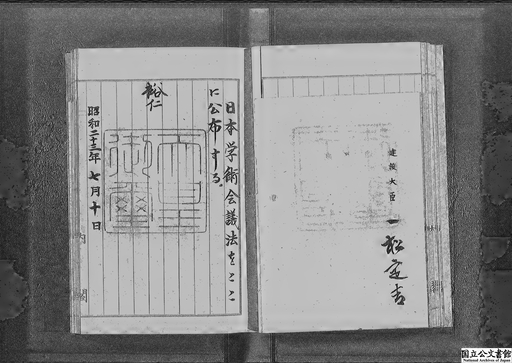 建設大臣 一松定吉
日本学術会議法をここ
に公布する。
裕仁
天皇
御璽
昭和二十三年七月十日
内閣
国立公文書館
National Archives of Japan